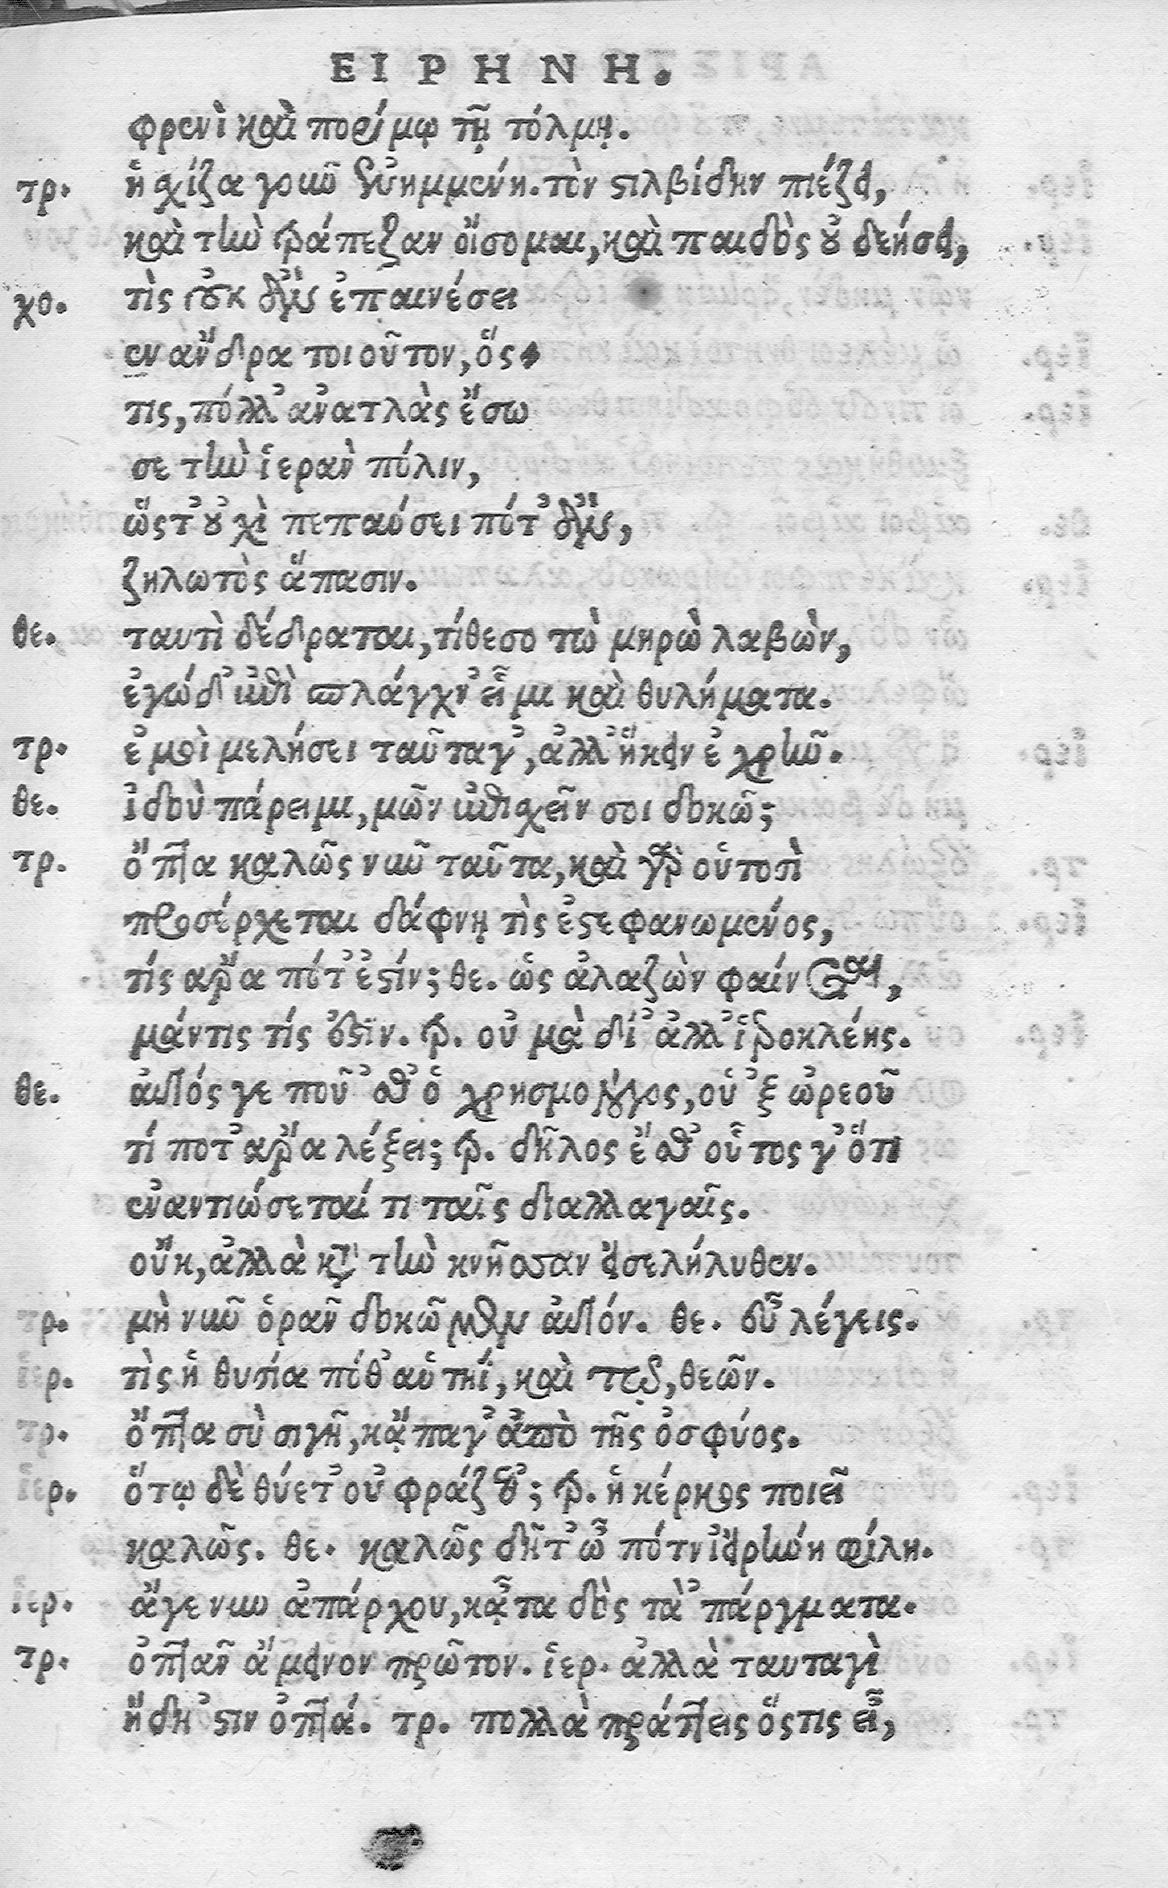 ΕΙΡΗΝΗ.
φρενὶ καὶ πορίμῳ τῇ τόλμῃ.
τρ. ἡ χίζα γοῦν ἐνημμένη. τὸν στιλβίδην πιέζει,
καὶ τὴν τράπεζαν οἴσομαι, καὶ παιδὸς οὐ δεήσει,
χο. τὶς οὐκ ἂν ἐπαινέσει
εν ἄνδρα τοιοῦτον, ὅς
τις, πόλλ' ἀνατλὰς ἔσω
σε τὴν ἱερὰν πόλιν,
ὥς τ' οὐχὶ πεπαύσει πότ' ἂν,
ζηλωτὸς ἅπασιν.
θε. ταυτὶ δέδραται, τίθεσο τὼ μηρὼ λαβὼν,
ἐγώ δ' ἐπὶ σπλάγχν' εἶμι καὶ θυλήματα.
τρ. ἐμοὶ μελήσει ταῦτα γ', ἀλλ' ἥκειν ἐχρῆν.
θε. ἰδοὺ πάρειμι, μῶν ἐπιχεῖν σοι δοκῶ;
τρ. ὄπτα καλῶς νῦν ταῦτα, καὶ γὰρ οὑτοσὶ
προσέρχεται δάφνῃ τὶς ἐστεφανωμένος,
τίς ἄρα πότ' ἐστίν; θε. ὡς ἀλαζὼν φαίνεται,
μάντις τίς ἐστιν. τρ. οὐ μὰ δί' ἀλλ' ἱεροκλέης.
θε. αὐτός γε ποῦ 'σθ' ὁ χρησμολόγος, οὑ 'ξ ὠρεοῦ
τί ποτ' ἄρα λέξει; τρ. δῆλος ἔσθ' οὗτος γ' ὅτι
ἐναντιώσεταί τι ταῖς διαλλαγαῖς.
οὔκ, ἀλλὰ κατὰ τὴν κνῆσσαν εἰσελήλυθεν.
τρ. μὴ νῦν ὁρᾶν δοκῶμεν αὐτόν. θε. εὖ λέγεις.
ἱερ. τὶς ἡ θυσία πόθ' αὑτηί, καὶ τῷ, θεῶν.
τρ. ὄπτα σὺ σιγῇ, κᾄπαγ' ἀπὸ τῆς ὀσφύος.
ἱερ. ὅτῳ δὲ θύετ' οὐ φράζεθ'; τρ. ἡ κέρκος ποιεῖ
καλῶς. θε. καλῶς δῆτ' ὦ πότνι' εἰρήνη φίλη.
ἱερ. ἄγε νυν ἀπάρχου, κᾆτα δὸς τὰ 'πάργματα.
τρ. ὀπτᾶν ἄμεινον πρῶτον. ἱερ. ἀλλὰ ταυταγὶ
ἤδη 'στιν ὀπτά. τρ. πολλὰ πράττεις ὅστις εἶ,